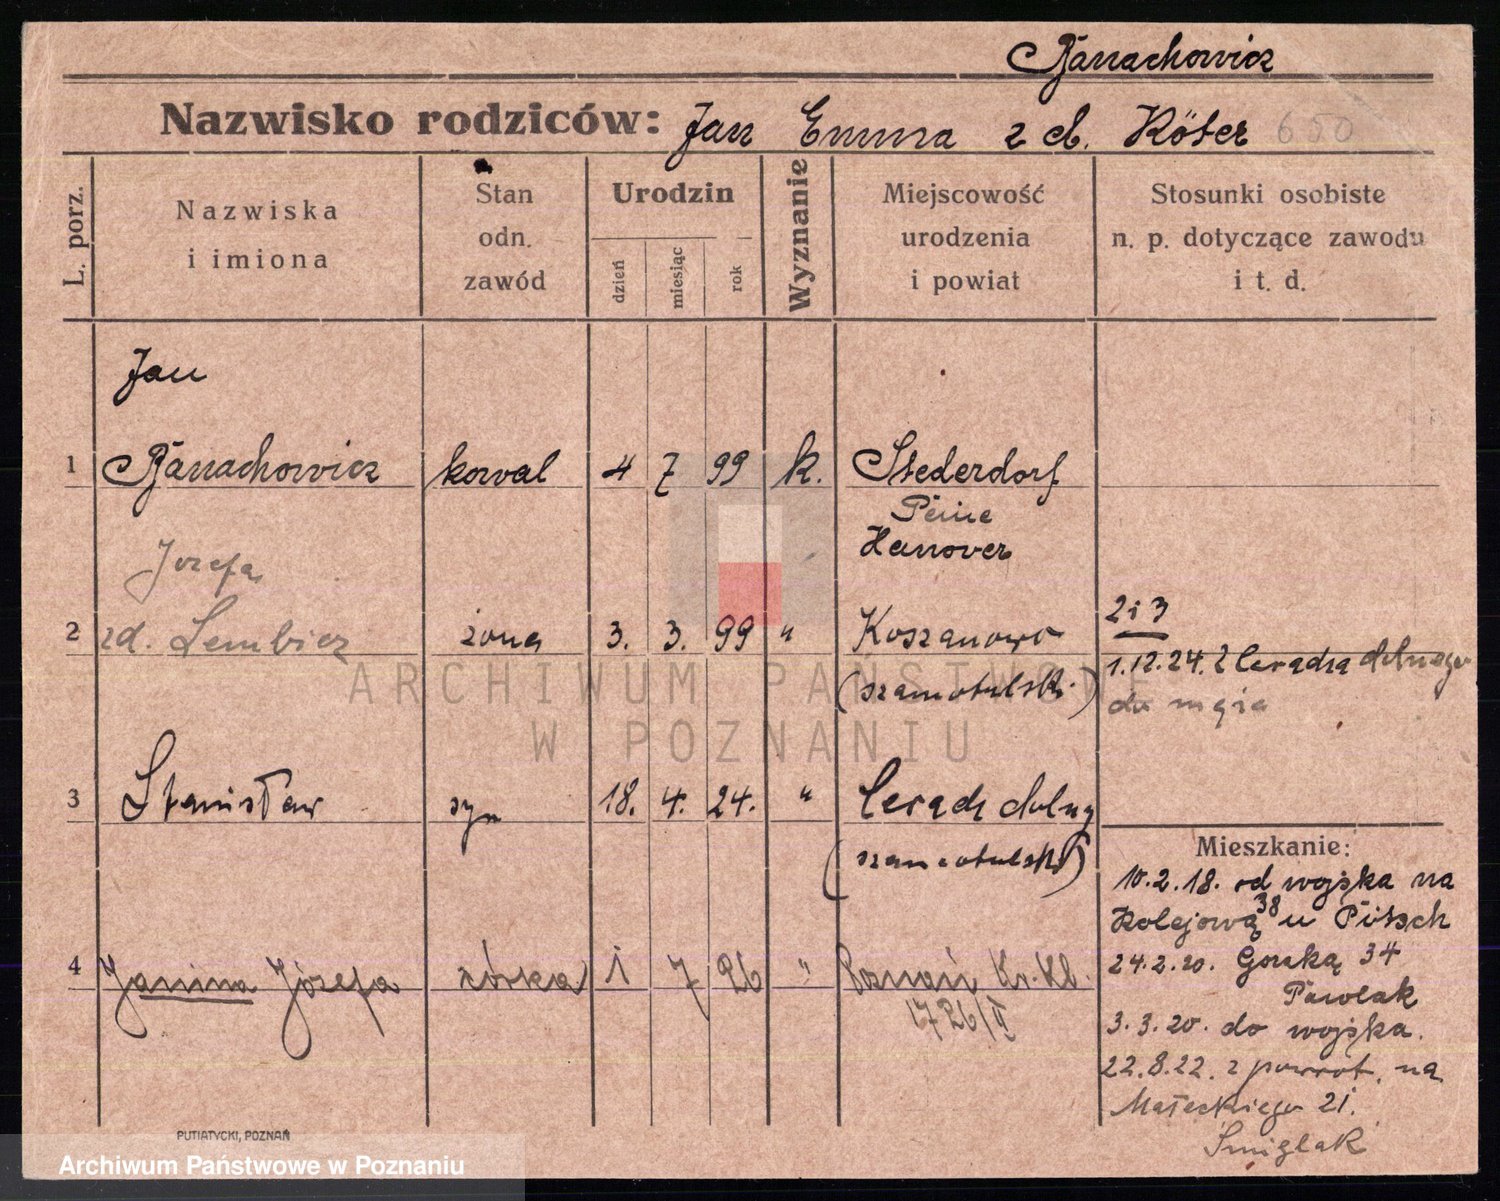 Banachowicz
Nazwisko rodziców: Jan Emma z d. Köter 650
L. porz.
Nazwiska
i imiona
Stan
odn.
zawód
Urodzin
dzień
miesiąc
rok
Wyznanie
Miejscowość
urodzenia
i powiat
Stosunki osobiste
n. p. dotyczące zawodu
i t. d.
Jan
1 Banachowicz kowal 4 7 99 k. Stederdorf
Peine
Hanover
Józefa
2 zd. Lembicz żona 3. 3. 99 " Koszanowo
(szamotulski)
2 i 3
1.12.24. z Cerądza dolnego
do męża
3 Stanisław syn 18. 4. 24. " Cerądz dolny
(szamotulski)
4 Janina Józefa córka 1 7 26 " Poznań Kr. Kl.
1726/II
Mieszkanie:
10.2.18. od wojska na
Kolejową 38 u Pötsch
24.2.20. Górską 34
Pawlak
3.3.20. do wojska.
22.8.22. z powrot. na
Małeckiego 21.
Śmiglak
PUTIATYCKI, POZNAŃ
ARCHIWUM PAŃSTWOWE
W POZNANIU
Archiwum Państwowe w Poznaniu